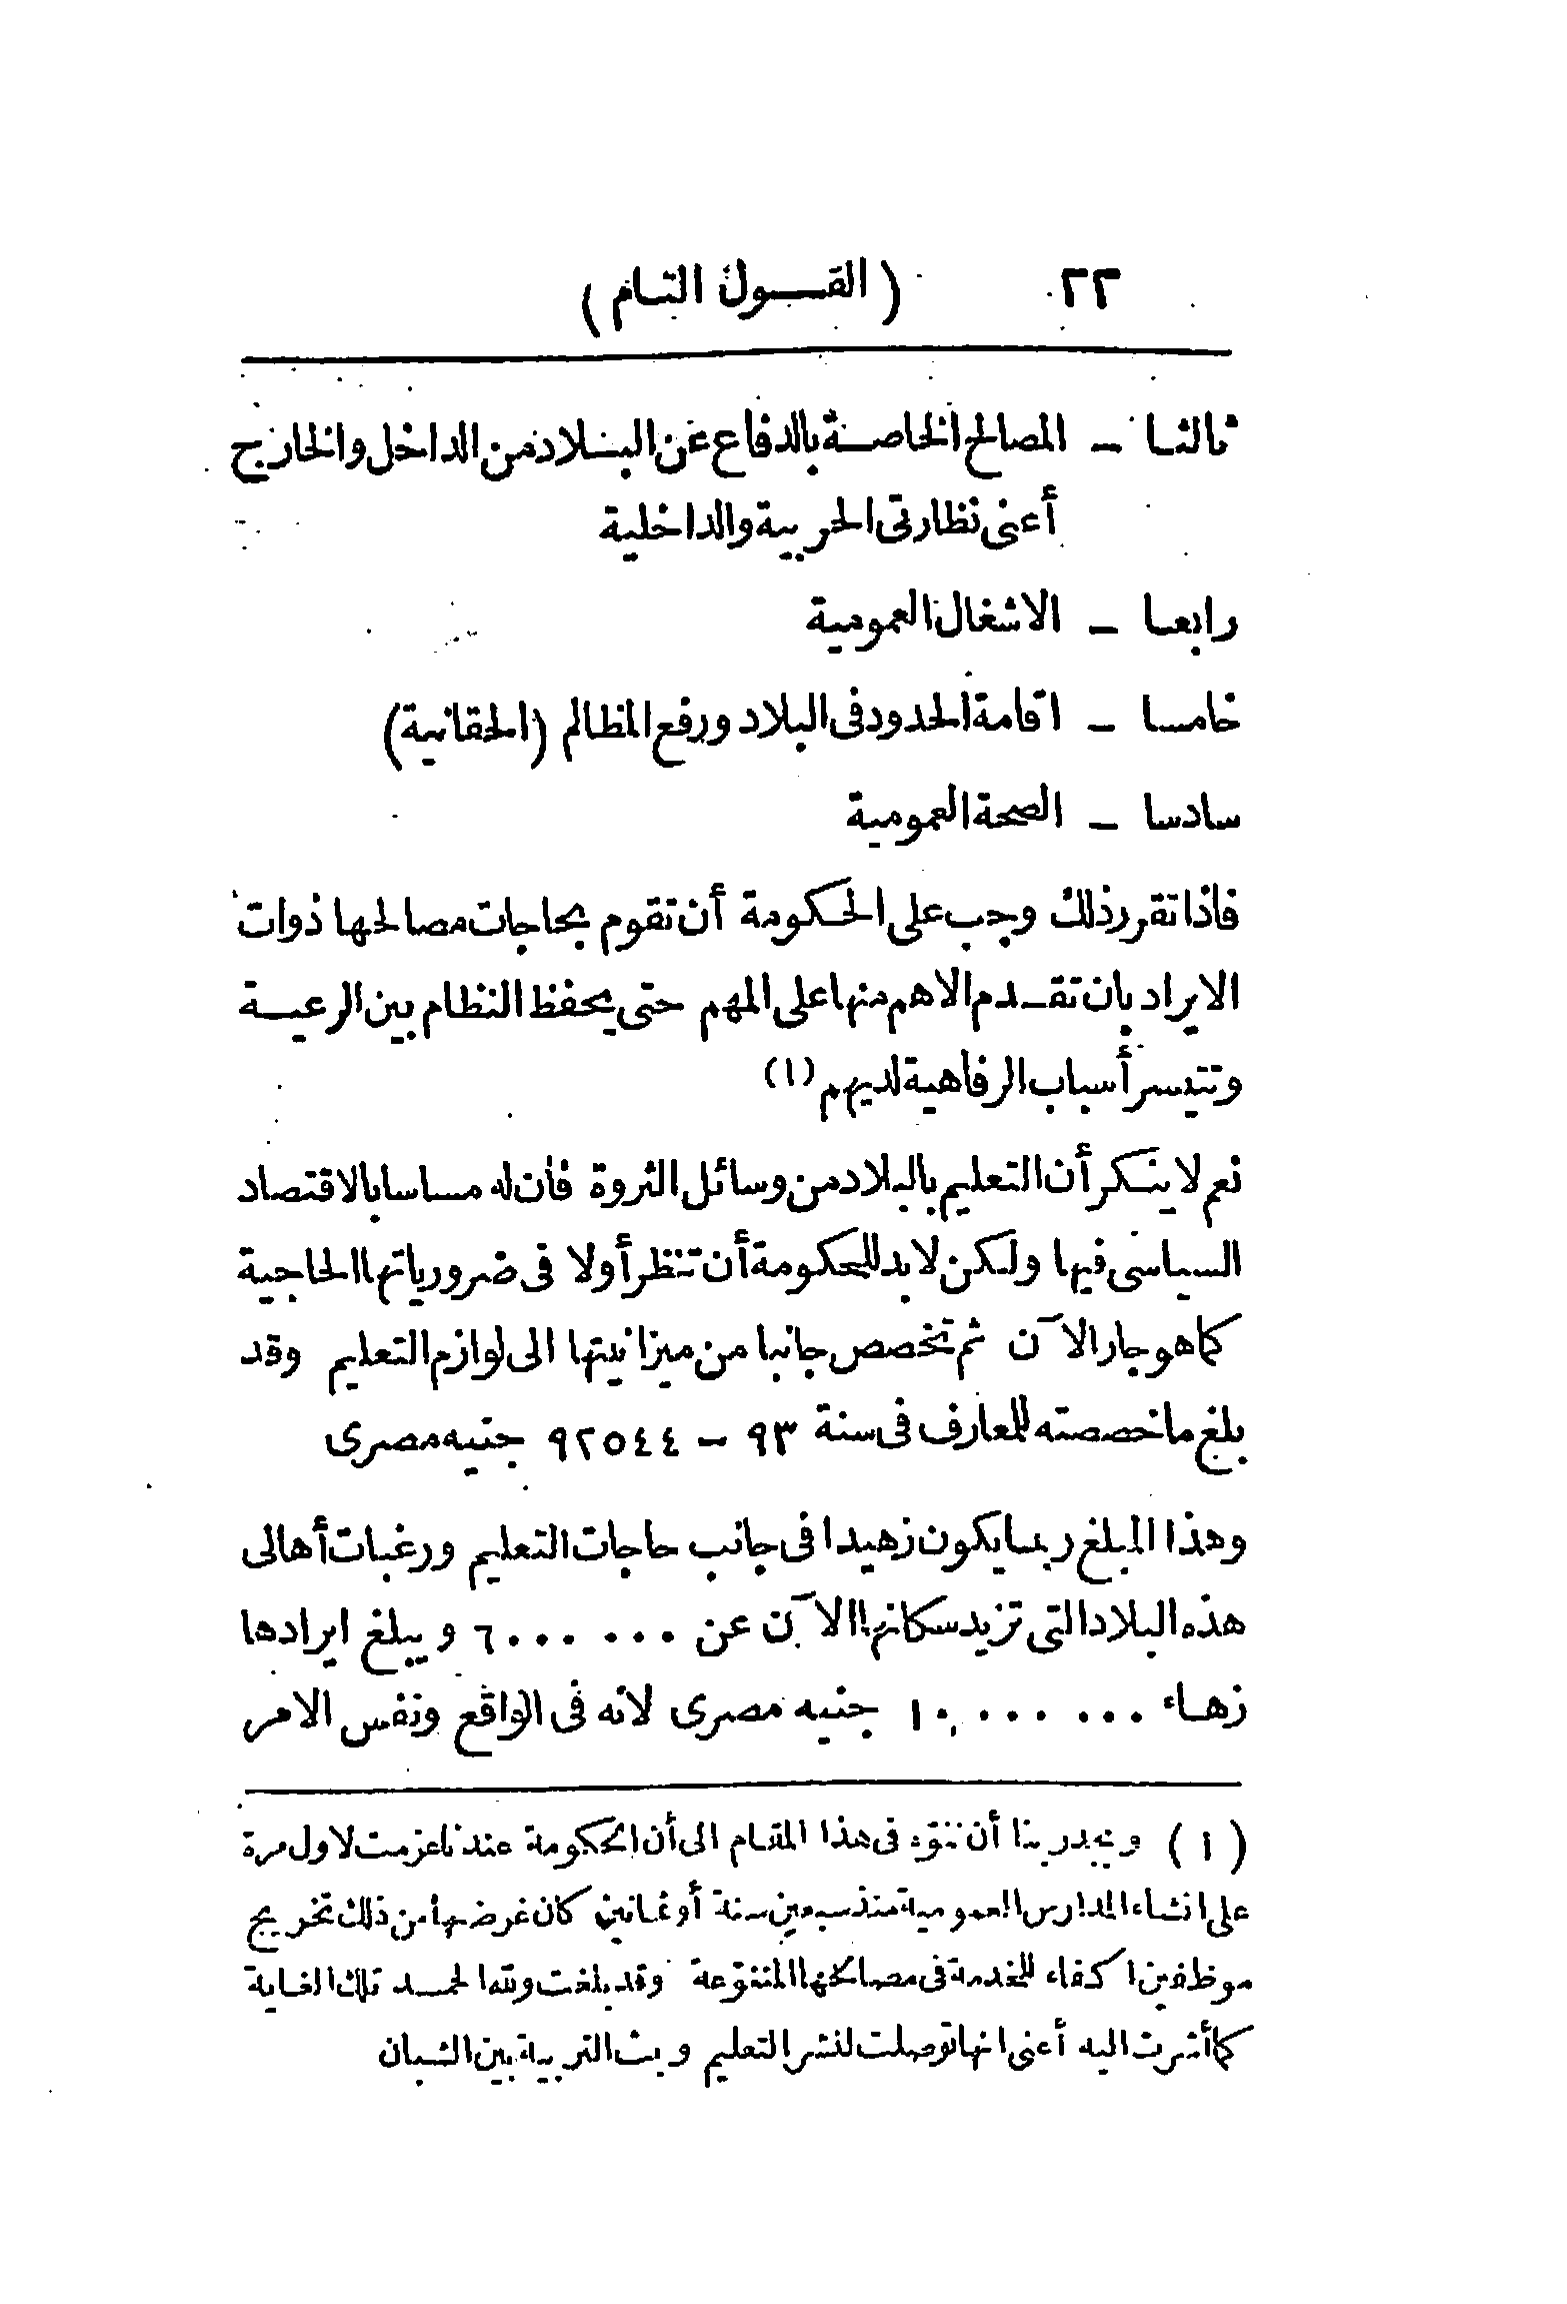 ٢٢ ( القــول التام )
ثالثا – المصالح الخاصة بالدفاع عن البلاد من الداخل والخارج
أعنى نظارتى الحربية والداخلية
رابعا – الاشغال العمومية
خامسا – اقامة الحدود فى البلاد ورفع المظالم (الحقانية)
سادسا – الصحة العمومية
فاذا تقرر ذلك وجب على الحكومة أن تقوم بحاجات مصالحها ذوات
الايراد بان تقدم الاهم منها على المهم حتى يحفظ النظام بين الرعية
وتتيسر أسباب الرفاهية لديهم (١)
نعم لا ينكر أن التعليم بالبلاد من وسائل الثروة فان له مساسا بالاقتصاد
السياسى فيها ولكن لا بد للحكومة أن تنظر أولا فى ضرورياتها الحاجية
كما هو جار الآن ثم تخصص جانبا من ميزانيتها الى لوازم التعليم وقد
بلغ ما خصصته للمعارف فى سنة ٩٣ – ٩٢٥٤٤ جنيه مصرى
وهذا المبلغ ربما يكون زهيدا فى جانب حاجات التعليم ورغبات أهالى
هذه البلاد التى تزيد سكانها الآن عن ٦٠٠٠٠٠٠ ويبلغ ايرادها
زهاء ١٠,٠٠٠٠٠٠ جنيه مصرى لانه فى الواقع ونفس الامر
(١) ويجدر بنا أن ننوّه فى هذا المقام الى أن الحكومة عندنا عزمت لاول مرة
على انشاء المدارس العمومية منذ سبعين سنة أو ثمانين كان غرضها من ذلك تخريج
موظفين اكفاء للخدمة فى مصالحها المتنوّعة وقد بلغت ولله الحمد تلك الغاية
كما أشرت اليه أعنى انها توصلت لنشر التعليم وبث التربية بين الشبان